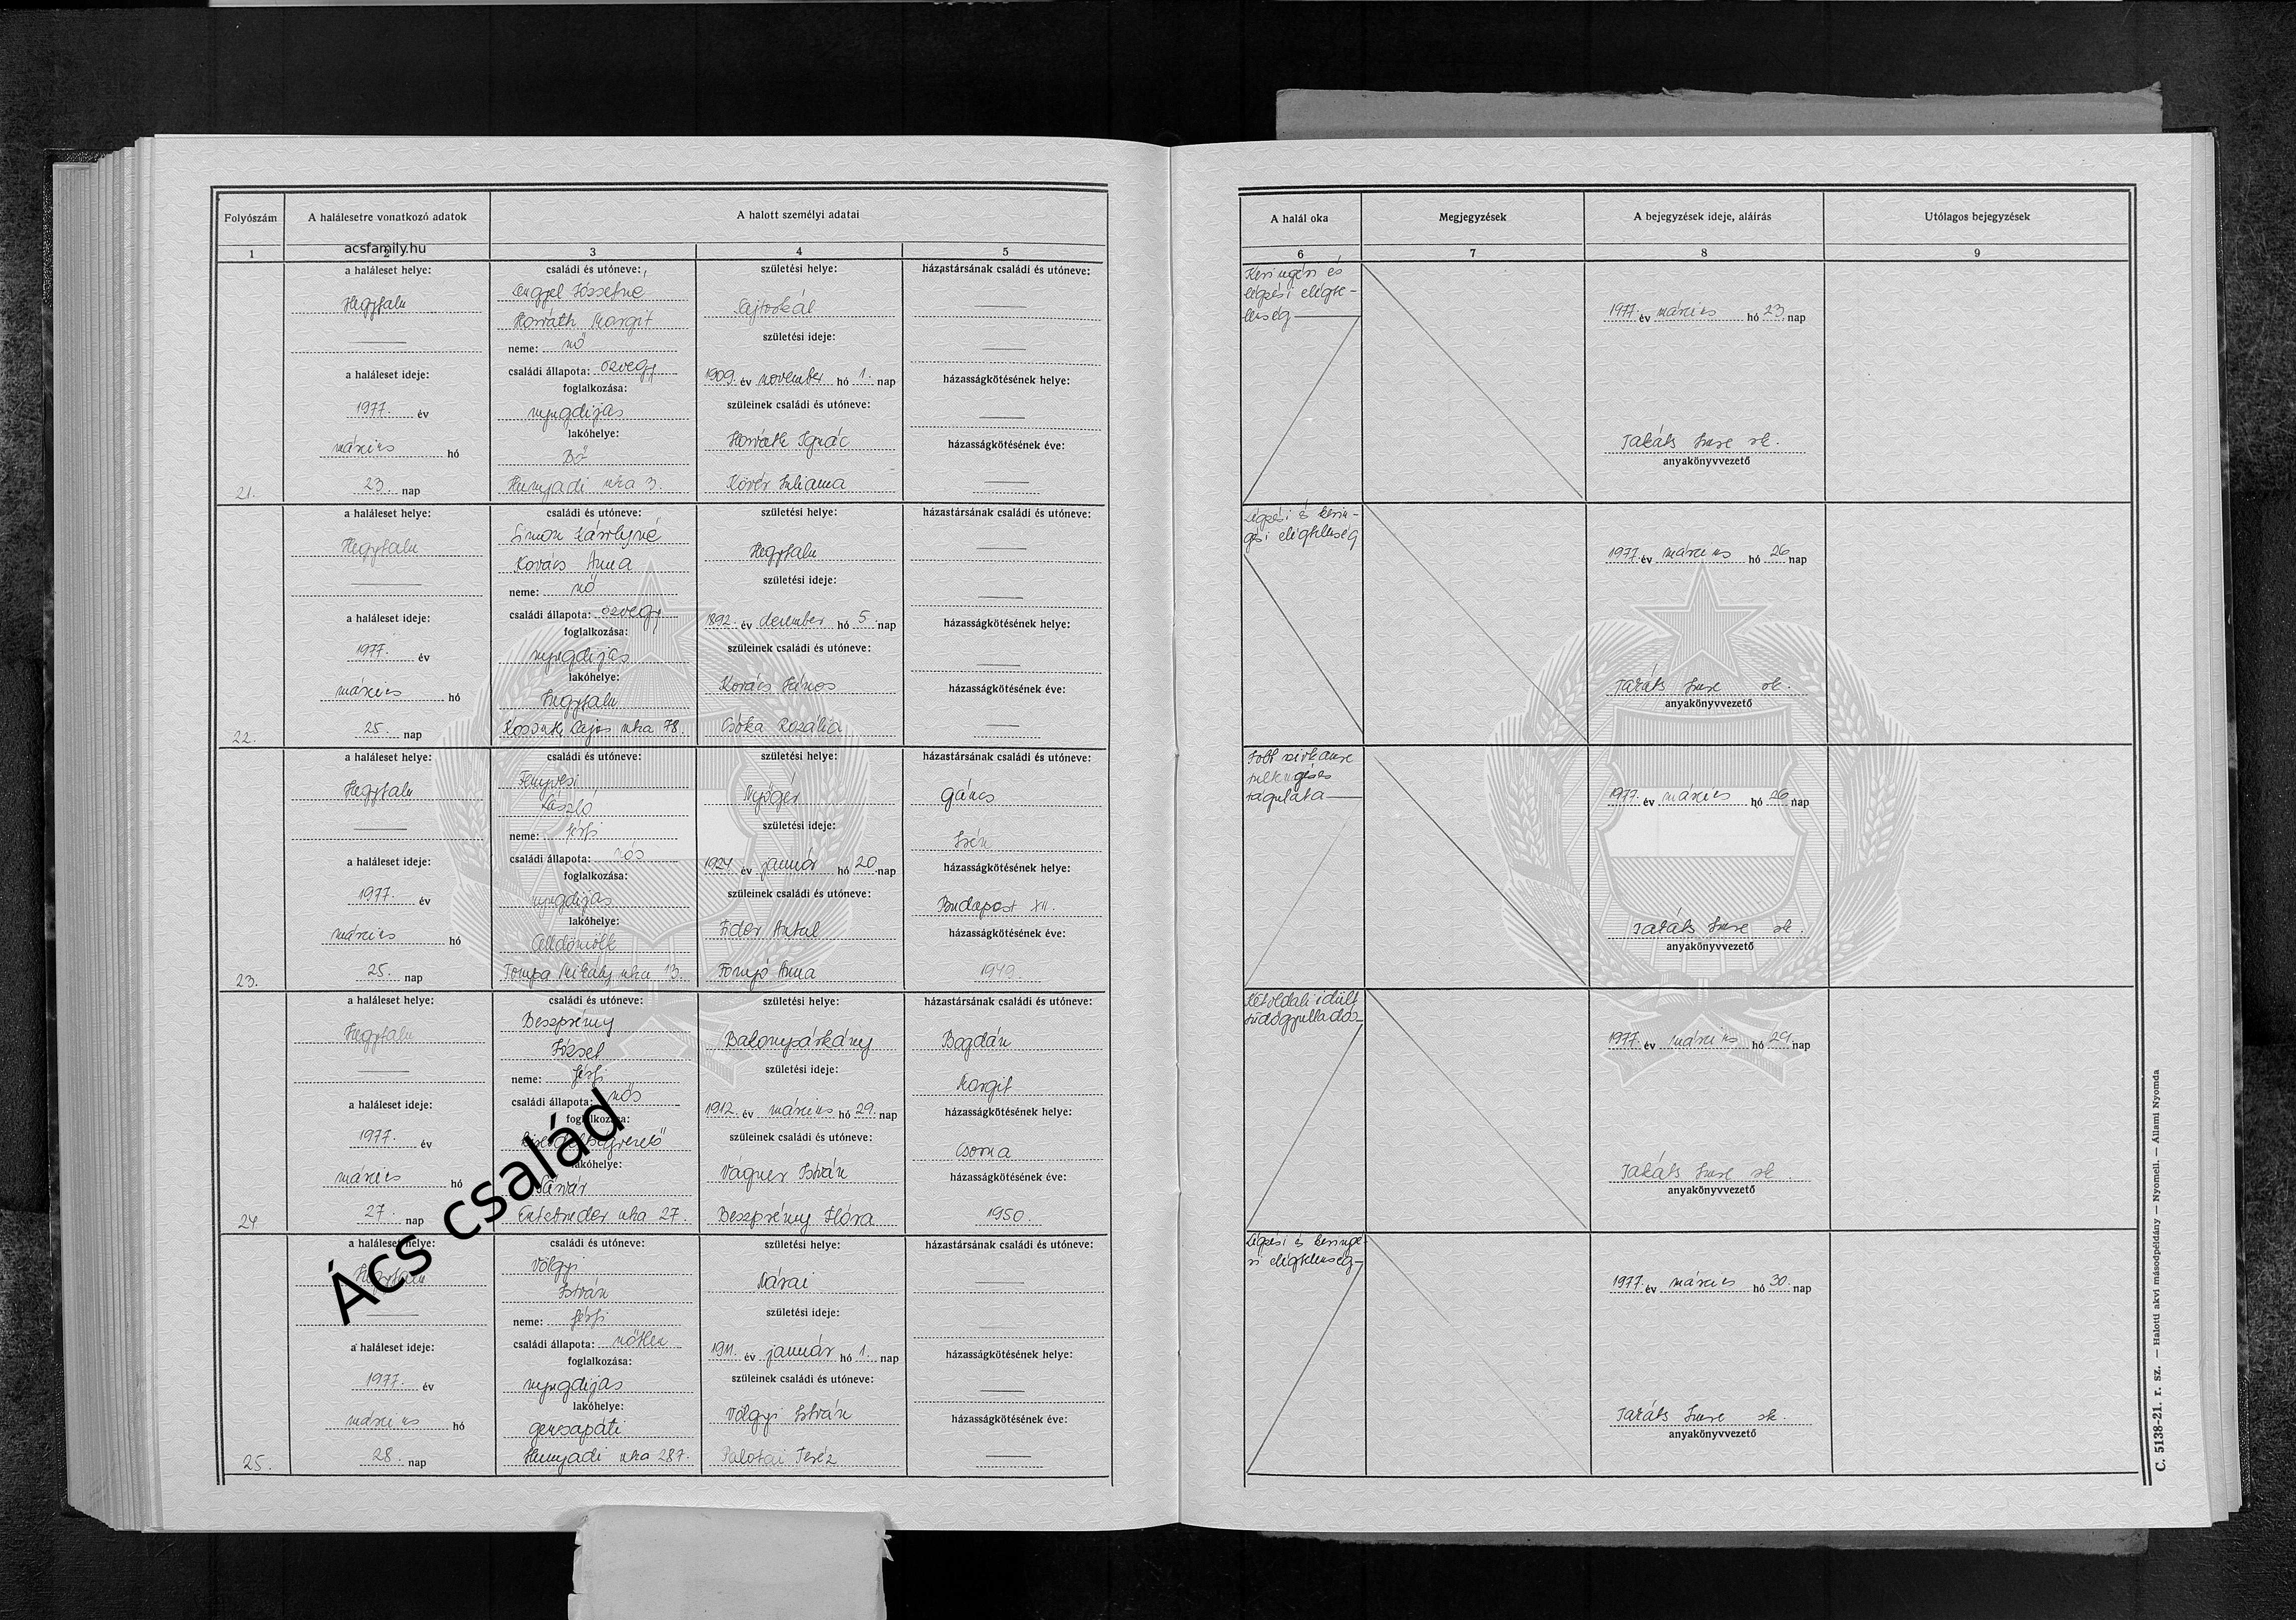 Folyószám
A halálesetre vonatkozó adatok
A halott személyi adatai
acsfamily.hu
1
2
3
4
5
a haláleset helye:
Hegyfalu
a haláleset ideje:
1977. év
március hó
21.
23. nap
családi és utóneve:
Lengyel Józsefné
Horváth Margit
neme: nő
családi állapota: özvegy
foglalkozása:
nyugdíjas
lakóhelye:
Bő
Hunyadi utca 3.
születési helye:
Sajtoskál
születési ideje:
1909. év november hó 1. nap
szüleinek családi és utóneve:
Horváth Ignác
Kövér Juliama
házastársának családi és utóneve:
házasságkötésének helye:
házasságkötésének éve:
a haláleset helye:
Hegyfalu
a haláleset ideje:
1977. év
március hó
22.
25. nap
családi és utóneve:
Simon Károlyné
Kovács Anna
neme: nő
családi állapota: özvegy
foglalkozása:
nyugdíjas
lakóhelye:
Hegyfalu
Kossuth Lajos utca 78.
születési helye:
Hegyfalu
születési ideje:
1892. év december hó 5. nap
szüleinek családi és utóneve:
Kovács János
Csóka Rozália
házastársának családi és utóneve:
házasságkötésének helye:
házasságkötésének éve:
a haláleset helye:
Hegyfalu
a haláleset ideje:
1977. év
március hó
23.
25. nap
családi és utóneve:
Fenyvesi
László
neme: férfi
családi állapota: nős
foglalkozása:
nyugdíjas
lakóhelye:
Celldömölk
Tompa Mihály utca 13.
születési helye:
Nyőgér
születési ideje:
1924. év január hó 20. nap
szüleinek családi és utóneve:
Fider Antal
Anna
házastársának családi és utóneve:
Gáncs
Irén
házasságkötésének helye:
Budapest XII.
házasságkötésének éve:
1949.
a haláleset helye:
Hegyfalu
a haláleset ideje:
1977. év
március hó
24.
27. nap
családi és utóneve:
Beszprémy
József
neme: férfi
családi állapota: nős
foglalkozása:
lakóhelye:
Sárvár
utca 27.
születési helye:
Bakonysárkány
születési ideje:
1912. év március hó 29. nap
szüleinek családi és utóneve:
Vágner István
Beszprémy Flóra
házastársának családi és utóneve:
Bogdán
Margit
házasságkötésének helye:
Csorna
házasságkötésének éve:
1950.
Ács család
a haláleset helye:
Hegyfalu
a haláleset ideje:
1977. év
március hó
25.
28. nap
családi és utóneve:
Völgyi
István
neme: férfi
családi állapota: nőtlen
foglalkozása:
nyugdíjas
lakóhelye:
Gencsapáti
Hunyadi utca 287.
születési helye:
Nárai
születési ideje:
1911. év január hó 1. nap
szüleinek családi és utóneve:
Völgyi István
Palotai Teréz
házastársának családi és utóneve:
házasságkötésének helye:
házasságkötésének éve:
A halál oka
Megjegyzések
A bejegyzések ideje, aláírás
Utólagos bejegyzések
6
7
8
9
Keringési és
légzési elégte-
lenség
1977. év március hó 23. nap
Takáts Imre sk.
anyakönyvvezető
Légzési és kerin-
gési elégtelenség
1977. év március hó 26 nap
Takáts Imre sk.
anyakönyvvezető
1977. év március hó 26 nap
Takáts Imre sk.
anyakönyvvezető
Kétoldali idült
tüdőgyulladás
1977. év március hó 29. nap
Takáts Imre sk.
anyakönyvvezető
Légzési és keringé-
si elégtelenség
1977. év március hó 30. nap
Takáts Imre sk.
anyakönyvvezető
C. 5138-21. r. sz. — Halotti akvi másodpéldány — Nyomell. — Állami Nyomda